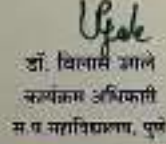 डॉ. विलास उगले
कार्यक्रम अधिकारी
म.प महाविद्यालय, पुणे